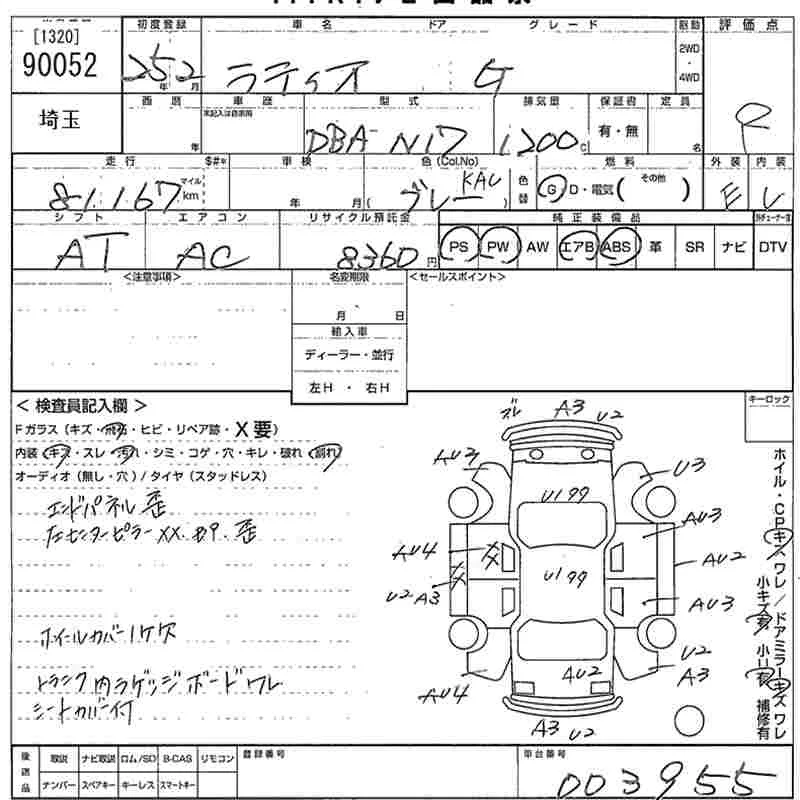 [1320]
90052
初度登録 車名 ドア グレード 駆動 評価点
252 年 月 ラティオ G 2WD・4WD
埼玉
車歴 型式 排気量 保証書 定員
未記入は自家用
年 DBA-N17 1200 C 有・無 名
走行 $#* 車検 色(Col.No) 燃料 外装 内装
81,167 マイル km 年 月 ( グレー KAC ) 色替 G・D・電気( その他 ) E
シフト エアコン リサイクル預託金 純正装備品
AT AC 8360 円 PS PW AW エアB ABS 革 SR ナビ DTV
<注意事項> 名変期限 <セールスポイント>
月 日
輸入車
ディーラー・並行
左H ・ 右H
<検査員記入欄> キーロック
Fガラス(キズ・飛石・ヒビ・リペア跡・X要)
内装(キズ・スレ・汚れ・シミ・コゲ・穴・キレ・破れ・割れ)
オーディオ(無し・穴)/タイヤ(スタッドレス)
エンドパネル歪
左センターピラーXX.凹.歪
ホイールカバー1ケ欠
トランク内ラゲッジボードワレ
シートカバー付
ズレ A3 U2
AU3 U3
U199
AU3
AU4 XX AU2
U199
U2 A3 XX AU3
U2
AU2 A3
AU4
A3 U2
ホイル・CPキズワレ/ドアミラーキズワレ
小キズ有 小凹有 補修有
後送品 取説 ナビ取説 ロム/SD B-CAS リモコン 登録番号 車台番号
ナンバー スペアキー キーレス スマートキー 003955